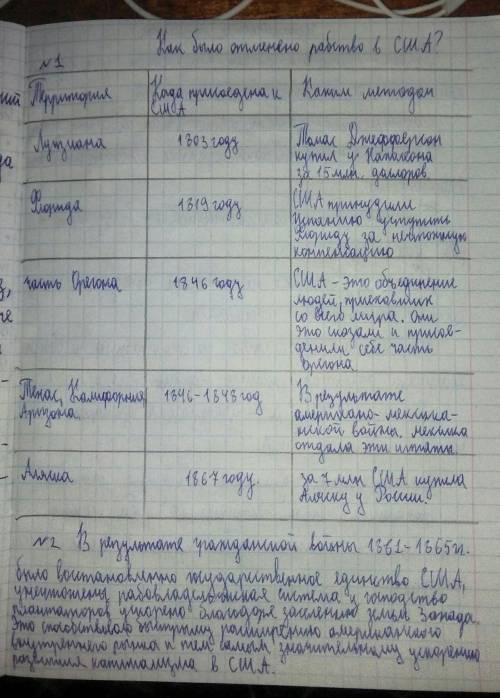 Как было отменено рабство в США?
№1
Территория
Когда присоедена к
США
Каким методом
Луизиана
1803 году
Томас Джефферсон
купил у Наполеона
за 15 млн. долларов
Флорида
1819 году
США принудили
Испанию уступить
Флориду за ничтожную
компенсацию
часть Орегона
1846 году
США - это объединение
людей, приехавших
со всего мира. Они
это сказали и присое-
денили себе часть
Орегона
Техас, Калифорния,
Аризона.
1846-1848 год
В результате
американо-мексика-
нской войны. мексика
отдала эти штаты
Аляска
1867 году.
за 7 млн США купила
Аляску у России.
№2 В результате гражданской войны 1861-1865гг.
было восстановленно государственное единство США,
уничтожены рабовладельческая система и господство
плантаторов ускорено благодаря заселению земель Запада.
Это способствовало быстрому расширению американского
внутреннего рынка и тем самым значительному ускорению
развития капитализма в США.